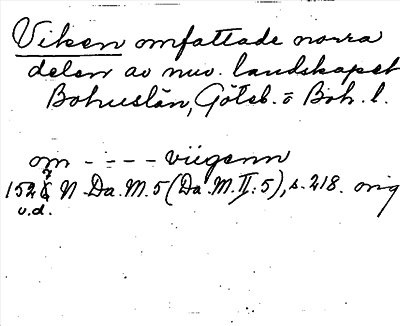 Viken omfattade norra
delen av nuv. landskapet
Bohuslän, Göteb. o Boh. l.
om - - - - viigenn
152 N. Da. M. 5 (Da. M. II: 5), s. 218. orig
u.d.